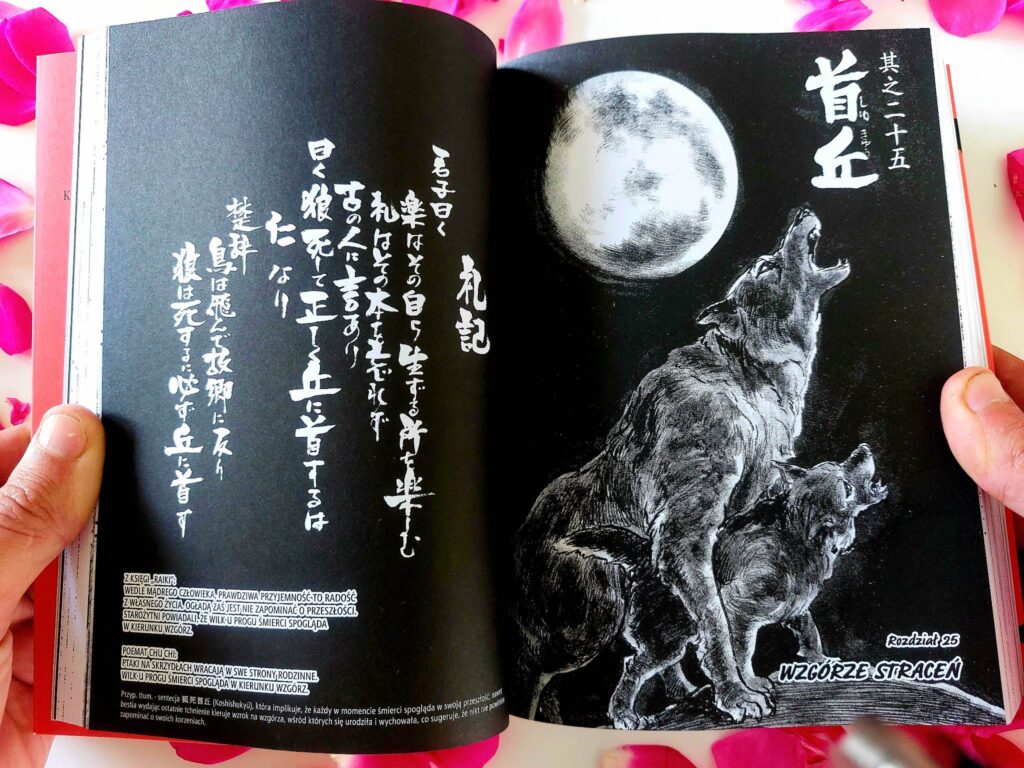 礼記
君子曰く
楽はその自ら生ずる所を楽しむ
礼はその本を忘れず
古の人に言あり
曰く狼死して正しく丘に首するは
仁なり
楚辞
鳥は飛んで故郷に反り
狼は死するに必ず丘に首す
Z KSIĘGI „RAIKI”:
WEDLE MĄDREGO CZŁOWIEKA, PRAWDZIWA PRZYJEMNOŚĆ TO RADOŚĆ
Z WŁASNEGO ŻYCIA, OGŁADĄ ZAŚ JEST NIE ZAPOMINAĆ O PRZESZŁOŚCI.
STAROŻYTNI POWIADALI, ŻE WILK U PROGU ŚMIERCI SPOGLĄDA
W KIERUNKU WZGÓRZ.
POEMAT CHU CHI:
PTAKI NA SKRZYDŁACH WRACAJĄ W SWE STRONY RODZINNE.
WILK U PROGU ŚMIERCI SPOGLĄDA W KIERUNKU WZGÓRZ.
Przyp. tłum. - sentecja 狐死首丘 (Koshishukyū), która implikuje, że każdy w momencie śmierci spogląda w swoją przeszłość, nawet
bestia wydając ostatnie tchnienie kieruje wzrok na wzgórza, wśród których się urodziła i wychowała, co sugeruje, że nikt nie powinien
zapominać o swoich korzeniach.
其之二十五
首丘
しゅきゅう
Rozdział 25
WZGÓRZE STRACEŃ